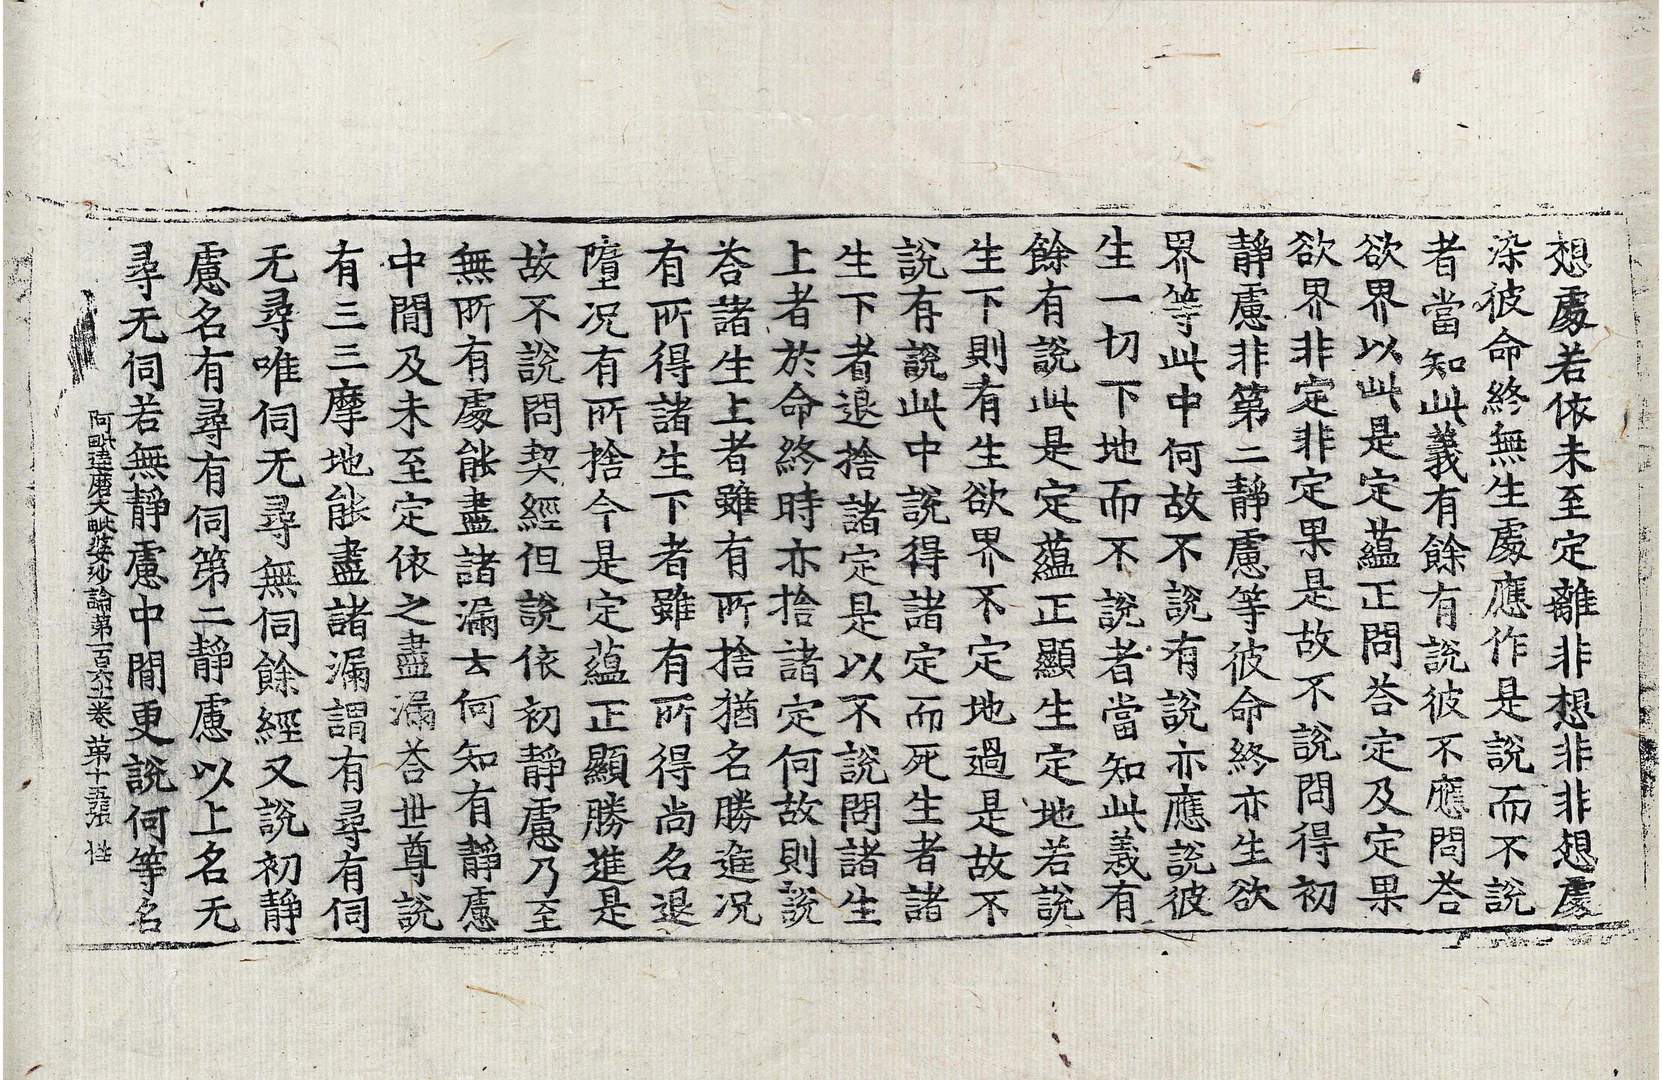 想處若依未至定離非想非非想處
染彼命終無生處應作是說而不說
者當知此義有餘有說彼不應問荅
欲界以此是定蘊正問荅定及定果
欲界非定非定果是故不說問得初
靜慮非第二靜慮等彼命終亦生欲
界等此中何故不說有說亦應說彼
生一切下地而不說者當知此義有
餘有說此是定蘊正顯生定地若說
生下則有生欲界不定地過是故不
說有說此中說得諸定而死生者諸
生下者退捨諸定是以不說問諸生
上者於命終時亦捨諸定何故則說
荅諸生上者雖有所捨猶名勝進況
有所得諸生下者雖有所得尚名退
墮况有所捨今是定蘊正顯勝進是
故不說問契經但說依初靜慮乃至
無所有處能盡諸漏去何知有靜慮
中閒及未至定依之盡漏荅世尊說
有三三摩地能盡諸漏謂有尋有伺
无尋唯伺无尋無伺餘經又說初靜
慮名有尋有伺第二靜慮以上名无
尋无伺若無靜慮中閒更說何等名
阿毗達磨大毗婆沙論第一百六十一卷 第十五張 性